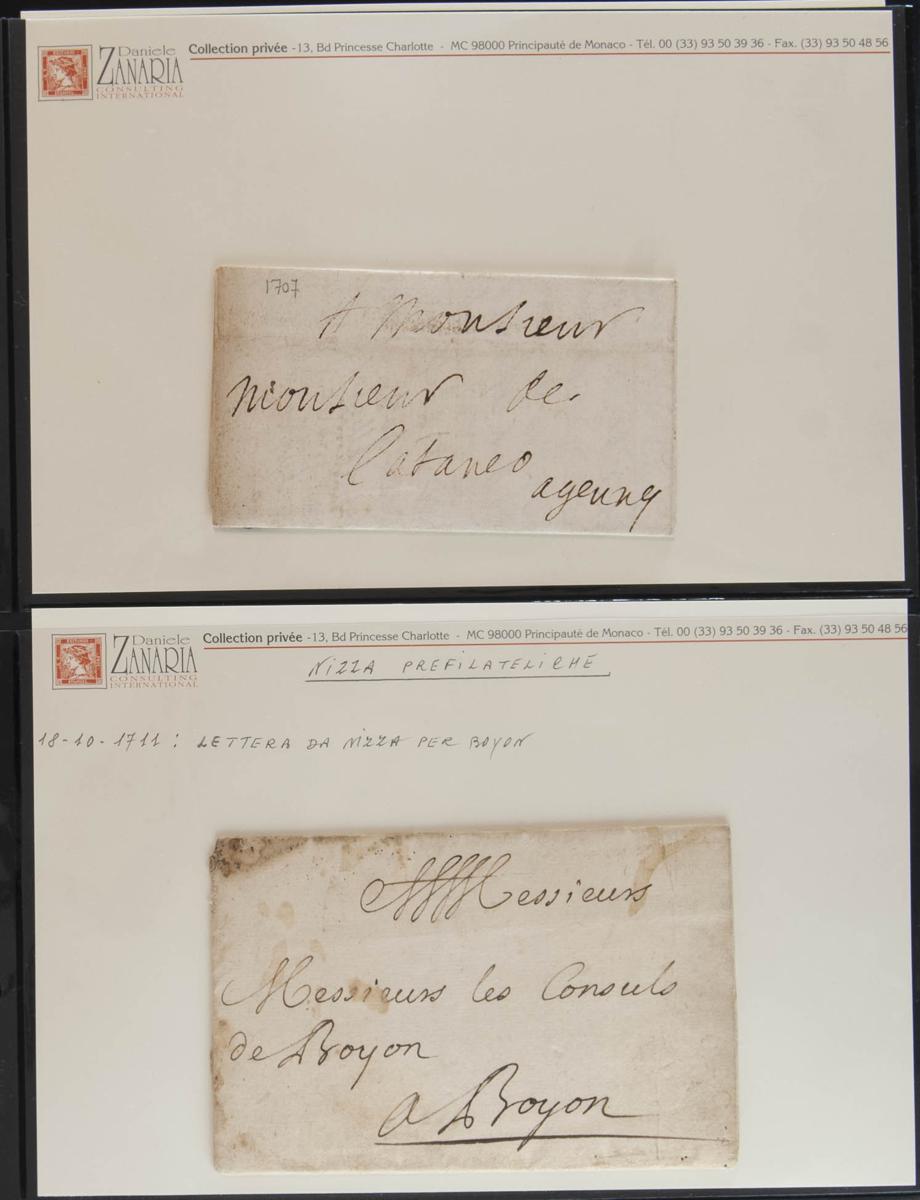 Daniele
ZANARIA
CONSULTING
INTERNATIONAL
Collection privée -13, Bd Princesse Charlotte - MC 98000 Principauté de Monaco - Tél. 00 (33) 93 50 39 36 - Fax. (33) 93 50 48 56
1707
A Monsieur
Monsieur de
Cataneo
Daniele
ZANARIA
CONSULTING
INTERNATIONAL
Collection privée -13, Bd Princesse Charlotte - MC 98000 Principauté de Monaco - Tél. 00 (33) 93 50 39 36 - Fax. (33) 93 50 48 56
NIZZA PREFILATELICHE
18-10-1711: LETTERA DA NIZZA PER BOYON
Messieurs
Messieurs les Consuls
de Boyon
a Boyon